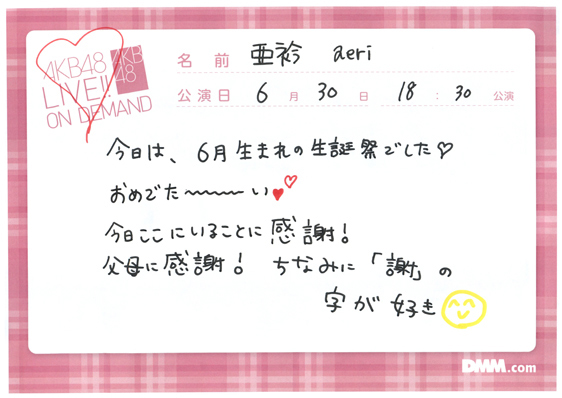 AKB48
LIVE!!
ON DEMAND
AKB
48
名前 亜衿 aeri
公演日 6月30日 18:30公演
今日は、6月生まれの生誕祭でした♡
おめでた〜〜〜い♥♡
今日ここにいることに感謝!
父母に感謝! ちなみに「謝」の
字が好き
DMM.com